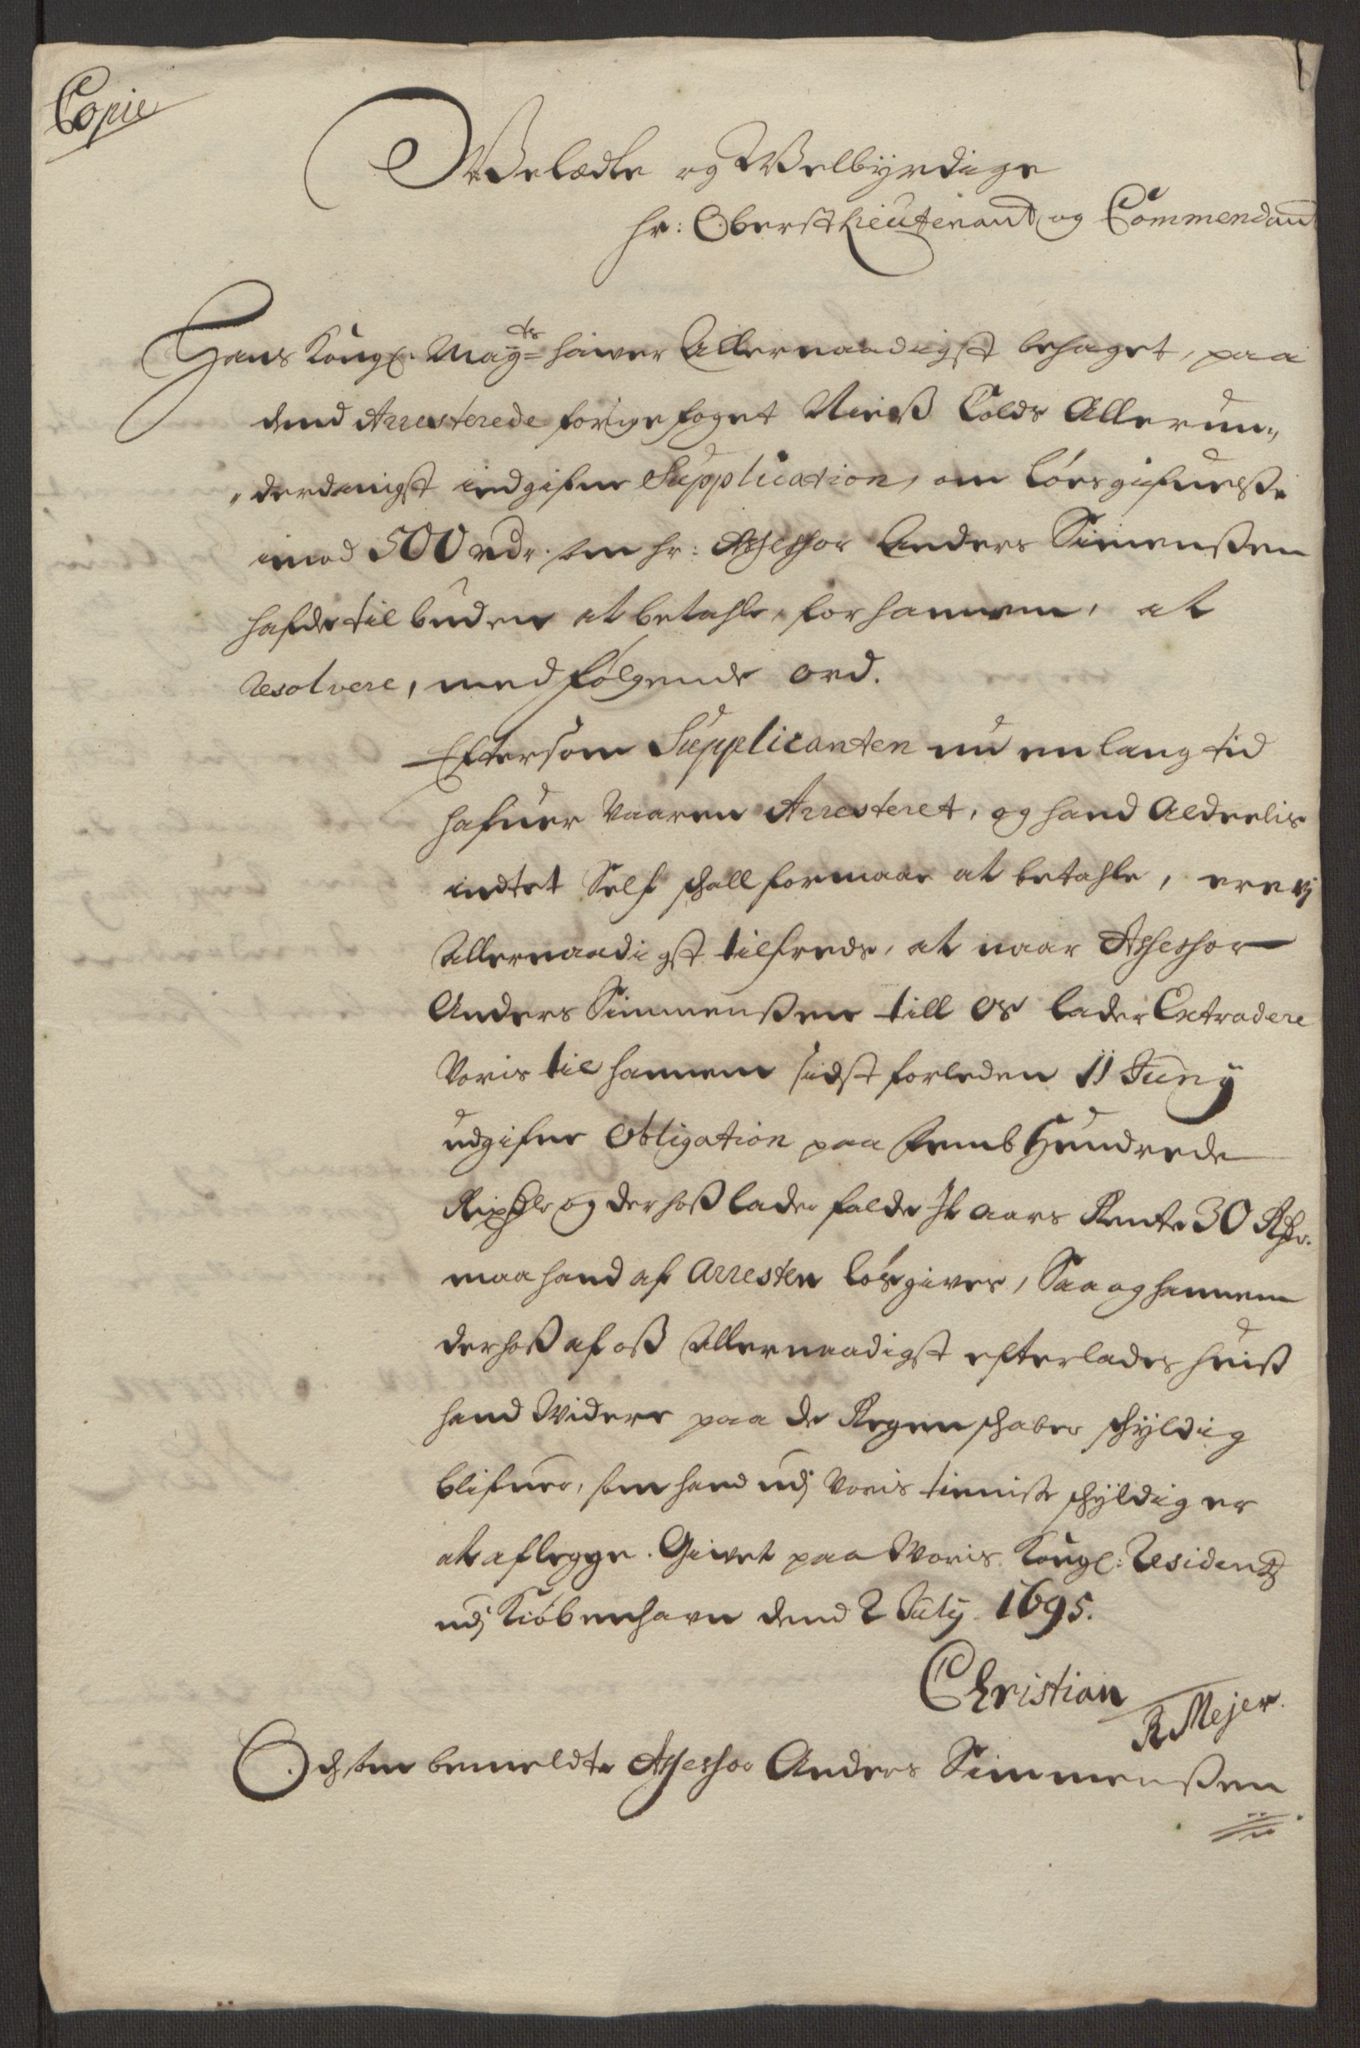 Copie
Welædle og Welbyrdige
hr: Oberstlieutenant og Commendant
Hans Kongl. Mayts hawer Allernaadigst behaget, paa
dend Arresterede forige foget Nielß Colds Allerun„
„derdanigst indgifne Supplication, om løesgifuelße
imod 500 rdr. som hr: Assessor Anders Simenßen
hafde tilbuden at betahle, for hannem, at
resolvere, med følgende ord.
Eftersom Supplicanten nu en lang tid
hafuer vaaren Arresteret, og hand Aldeelis
indtet Self schall formaae at betahle, ere vj
Allernaadigst tilfreds, at naar Assessor
Anders Simmenßen till os lader Extradere
Voris til hannem sidst forleden 11 Juny
udgifne Obligation paa Femb Hundrede
Rixdlr og derhoß lader falde It aars Rente 30 Rdr.
maa hand af Arresten løsgives, Saa og hannem
derhoß af oß Allernaadigst efterlades huiß
hand Widere paa de Regenschaber schyldig
blifuer, som hand udj Voris tieniste schyldig er
at aflegge. Givet paa Woris Kongl: Residentz
udj Kiøbenhavn dend 2 July 1695.
Christian
R Mejer.
Och som bemeldte Assessor Anders Simmenßen